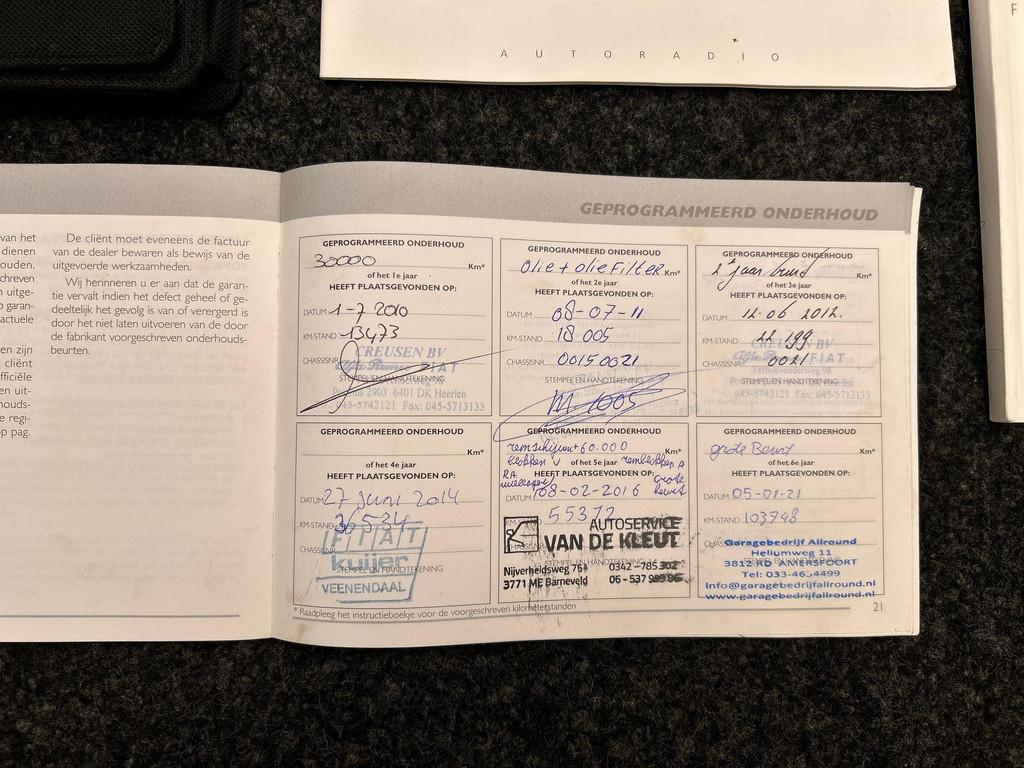 AUTORADIO
F
van het
dienen
ouden.
hreven
uitge-
garan-
actuele
en zijn
cliënt
fficiële
en uit-
houds-
e regi-
p pag.
De cliënt moet eveneens de factuur
van de dealer bewaren als bewijs van de
uitgevoerde werkzaamheden.
Wij herinneren u er aan dat de garan-
tie vervalt indien het defect geheel of ge-
deeltelijk het gevolg is van of verergerd is
door het niet laten uitvoeren van de door
de fabrikant voorgeschreven onderhouds-
beurten.
GEPROGRAMMEERD ONDERHOUD
GEPROGRAMMEERD ONDERHOUD
30000 Km*
of het 1e jaar
HEEFT PLAATSGEVONDEN OP:
DATUM 1-7 2010
KM-STAND 13473
CHASSISNR.
CREUSEN BV
Alfa Romeo FIAT
STEMPEL EN HANDTEKENING
2903 6401 DK Heerlen
045-5742121 Fax: 045-5713133
GEPROGRAMMEERD ONDERHOUD
Olie + olie Filter Km*
of het 2e jaar
HEEFT PLAATSGEVONDEN OP:
DATUM 08-07-11
KM-STAND 18 005
CHASSISNR. 00150021
STEMPEL EN HANDTEKENING
M 1005
GEPROGRAMMEERD ONDERHOUD
2 jaar Km*
of het 3e jaar
HEEFT PLAATSGEVONDEN OP:
DATUM 12.06 2012.
KM-STAND 22 199
CHASSISNR. 0021
FIAT
STEMPEL EN HANDTEKENING
6401 DK Heerlen
045-5742121 Fax: 045-5713133
GEPROGRAMMEERD ONDERHOUD
Km*
of het 4e jaar
HEEFT PLAATSGEVONDEN OP:
DATUM 27 Juni 2014
KM-STAND 30534
CHASSISNR.
FIAT
kuijer
STEMPEL EN HANDTEKENING
VEENENDAAL
GEPROGRAMMEERD ONDERHOUD
remschijven + 60.000 Km*
blokken V of het 5e jaar remblokken A
RA HEEFT PLAATSGEVONDEN OP: Grote
wiellager beurt
DATUM 08-02-2016
55372
AUTOSERVICE
VAN DE KLEUT
STEMPEL EN HANDTEKENING
Nijverheidsweg 75 0342-785 302
3771 ME Barneveld 06-537
GEPROGRAMMEERD ONDERHOUD
grote Beurt Km*
of het 6e jaar
HEEFT PLAATSGEVONDEN OP:
DATUM 05-01-21
KM-STAND 103748
Garagebedrijf Allround
Heliumweg 11
3812 RD AMERSFOORT
Tel: 033-46 4499
Info@garagebedrijfallround.nl
www.garagebedrijfallround.nl
* Raadpleeg het instructieboekje voor de voorgeschreven kilometerstanden
21